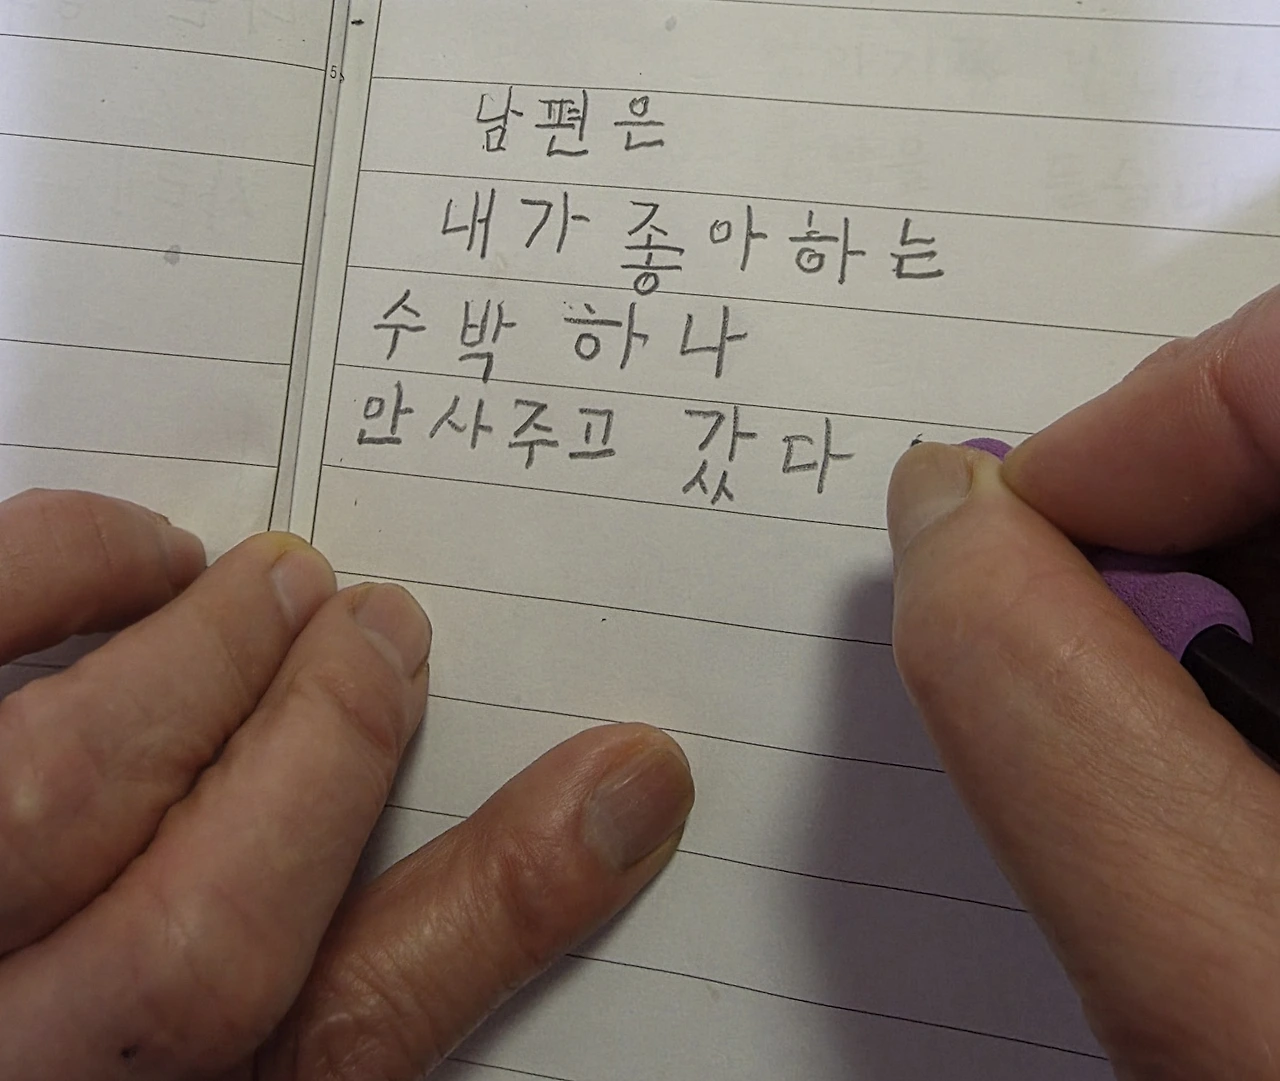 5
남편은
내가 좋아하는
수박 하나
안사주고 갔다